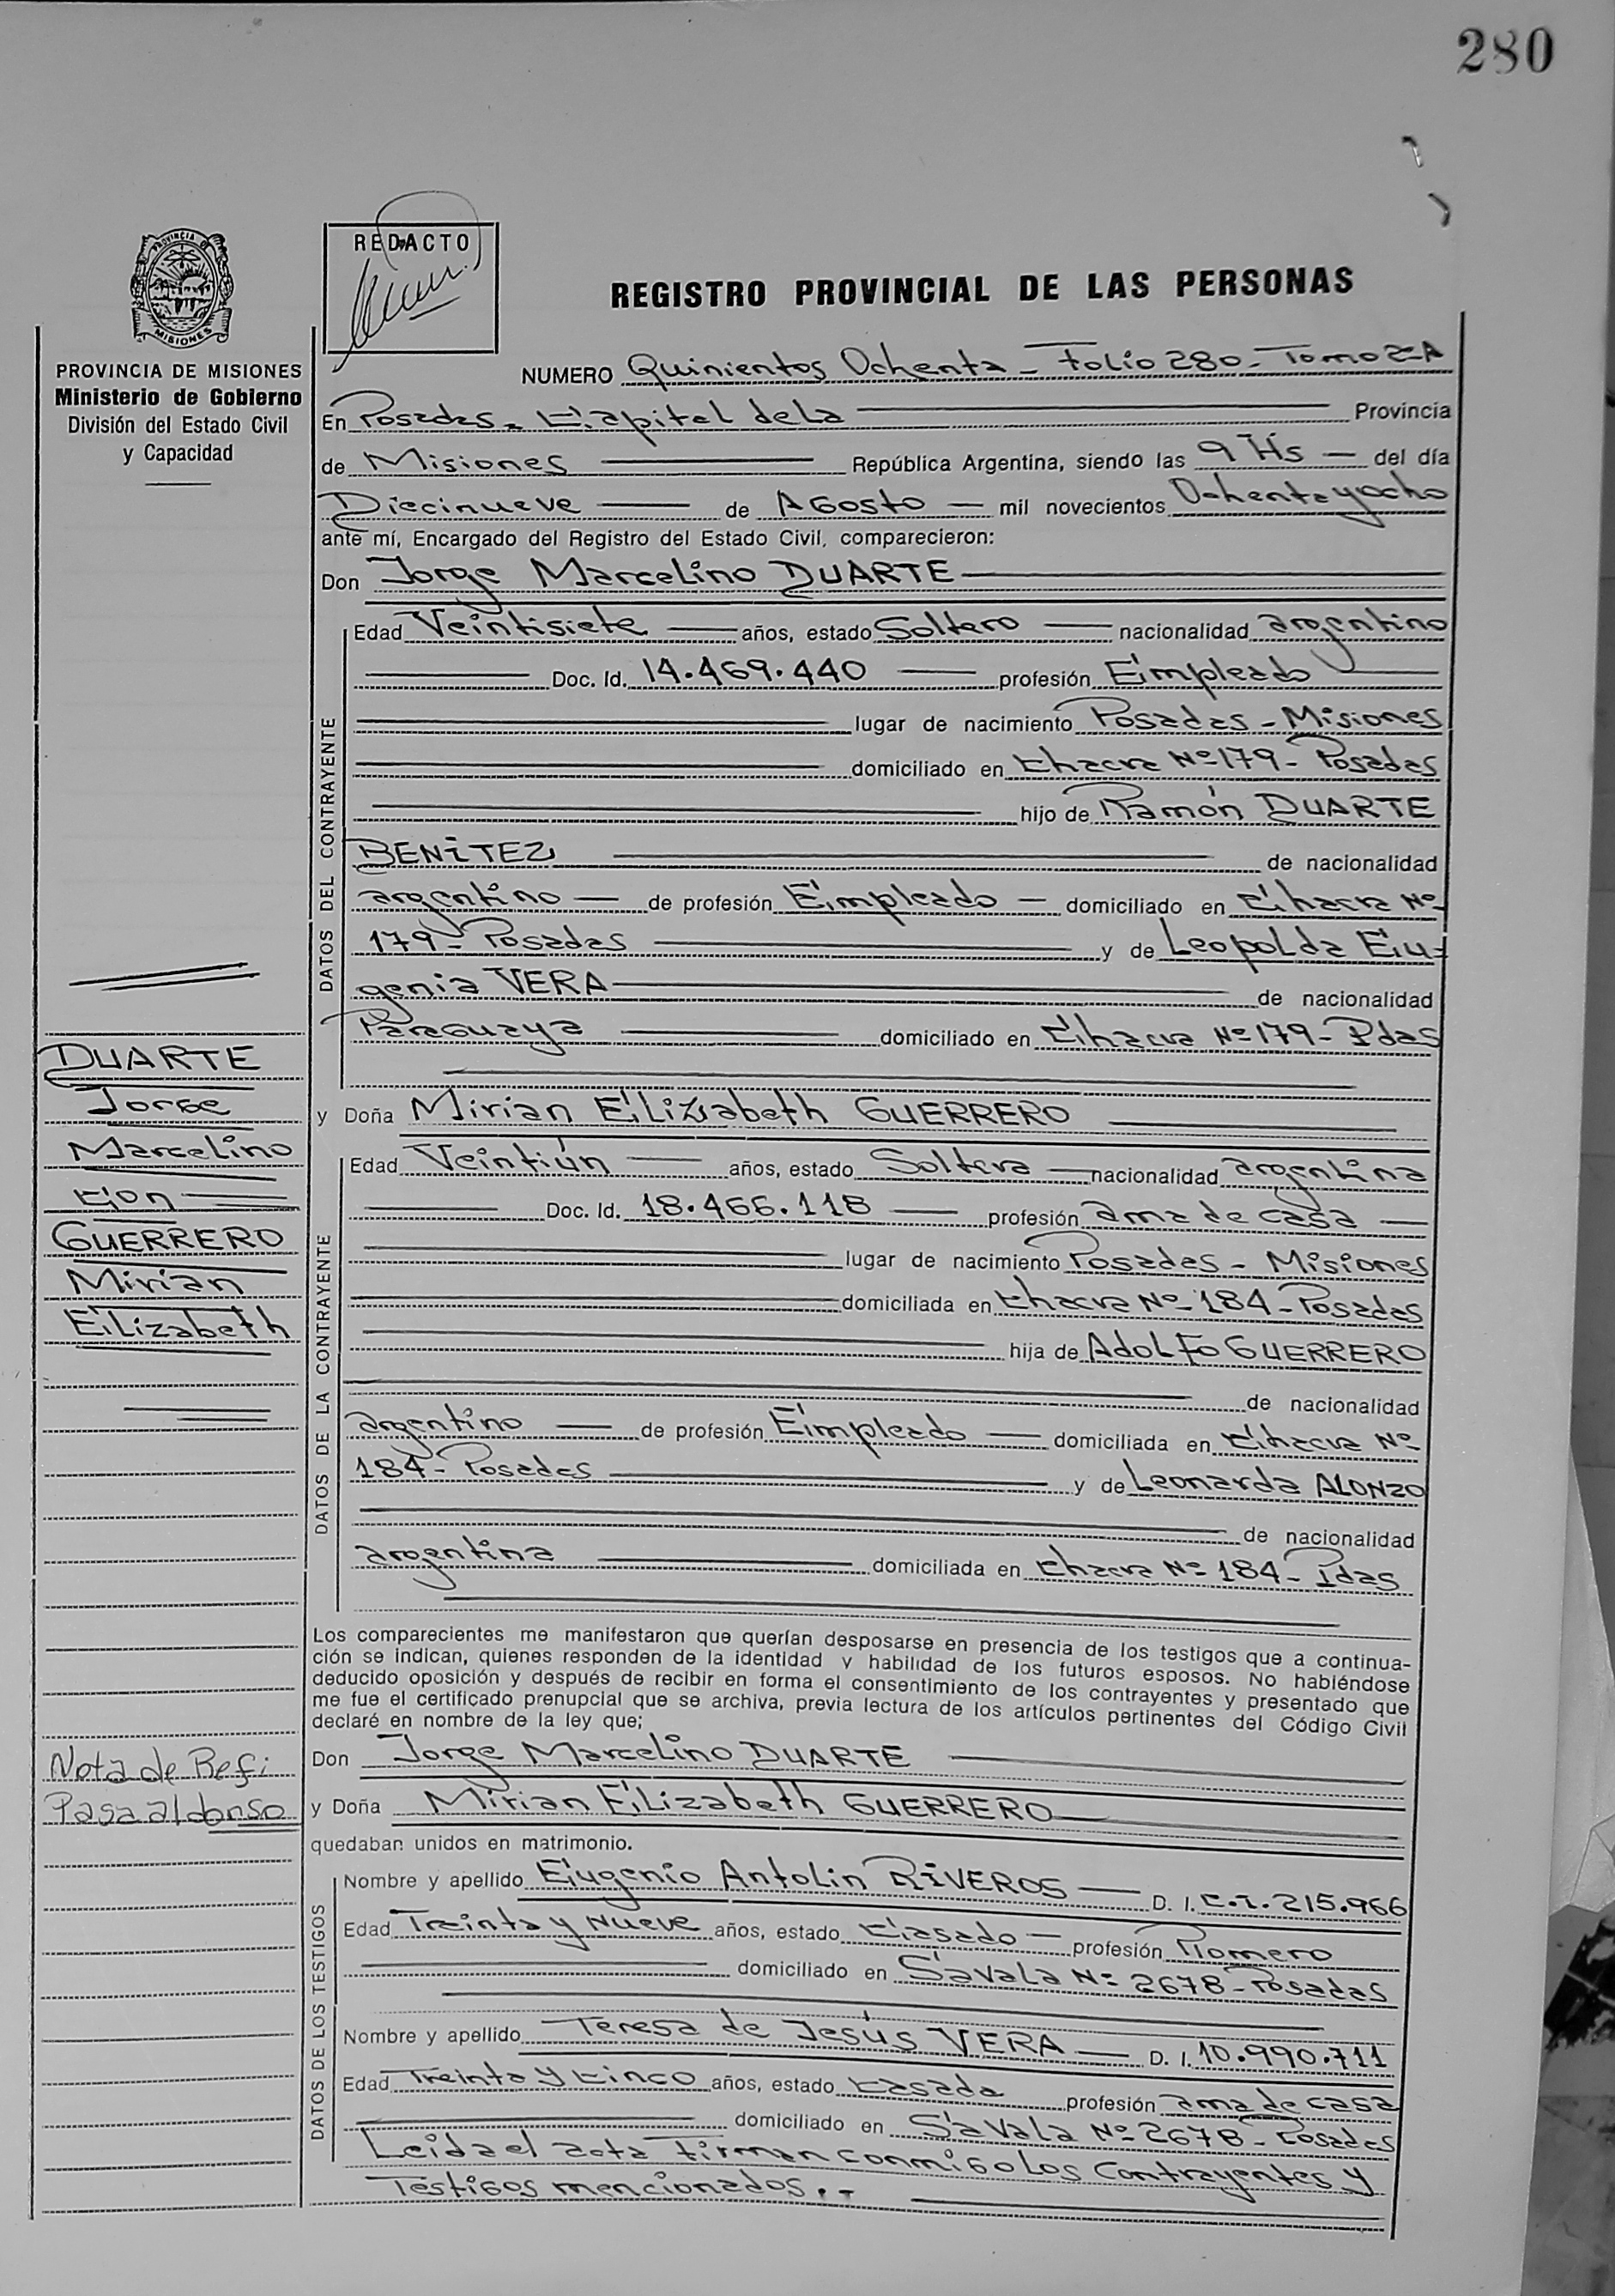 280
PROVINCIA DE
MISIONES
REDACTO
REGISTRO PROVINCIAL DE LAS PERSONAS
PROVINCIA DE MISIONES
Ministerio de Gobierno
División del Estado Civil
y Capacidad
NUMERO Quinientos Ochenta - Folio 280 - Tomo 2-A
En Posadas - Capital de la Provincia
de Misiones República Argentina, siendo las 9 Hs del día
Diecinueve de AGosto mil novecientos Ochenta y ocho
ante mí, Encargado del Registro del Estado Civil, comparecieron:
Don Jorge Marcelino DUARTE
DATOS DEL CONTRAYENTE
Edad Veintisiete años, estado Soltero nacionalidad argentino
Doc. Id. 14.469.440 profesión Empleado
lugar de nacimiento Posadas - Misiones
domiciliado en Chacra Nº 179 - Posadas
hijo de Ramón DUARTE
BENITEZ de nacionalidad
argentino de profesión Empleado domiciliado en Chacra Nº
179 - Posadas y de Leopolda Eu=
genia VERA de nacionalidad
Paraguaya domiciliado en Chacra Nº 179 - Pdas
y Doña Mirian Elizabeth GUERRERO
DATOS DE LA CONTRAYENTE
Edad Veintiún años, estado Soltera nacionalidad argentina
Doc. Id. 18.466.118 profesión ama de casa
lugar de nacimiento Posadas - Misiones
domiciliada en Chacra Nº 184 - Posadas
hija de AdoLFo GUERRERO
de nacionalidad
argentino de profesión Empleado domiciliada en Chacra Nº
184 - Posadas y de Leonarda ALONZO
de nacionalidad
argentina domiciliada en Chacra Nº 184 - Pdas
DUARTE
Jorge
Marcelino
Con
GUERRERO
Mirian
Elizabeth
Los comparecientes me manifestaron que querían desposarse en presencia de los testigos que a continua-
ción se indican, quienes responden de la identidad y habilidad de los futuros esposos. No habiéndose
deducido oposición y después de recibir en forma el consentimiento de los contrayentes y presentado que
me fue el certificado prenupcial que se archiva, previa lectura de los artículos pertinentes del Código Civil
declaré en nombre de la ley que;
Don Jorge Marcelino DUARTE
y Doña Mirian Elizabeth GUERRERO
quedaban unidos en matrimonio.
Nota de Ref:
Pasa al dorso
DATOS DE LOS TESTIGOS
Nombre y apellido Eugenio Antolin RIVEROS D. I. C.I. 215.966
Edad Treinta y Nueve años, estado Casado profesión Plomero
domiciliado en Savala Nº 2678 - Posadas
Nombre y apellido Teresa de Jesús VERA D. I. 10.990.711
Edad Treinta y Cinco años, estado Casada profesión ama de casa
domiciliado en Savala Nº 2678 - Posadas
Leida el acta firman conmigo los Contrayentes y
Testigos mencionados..-